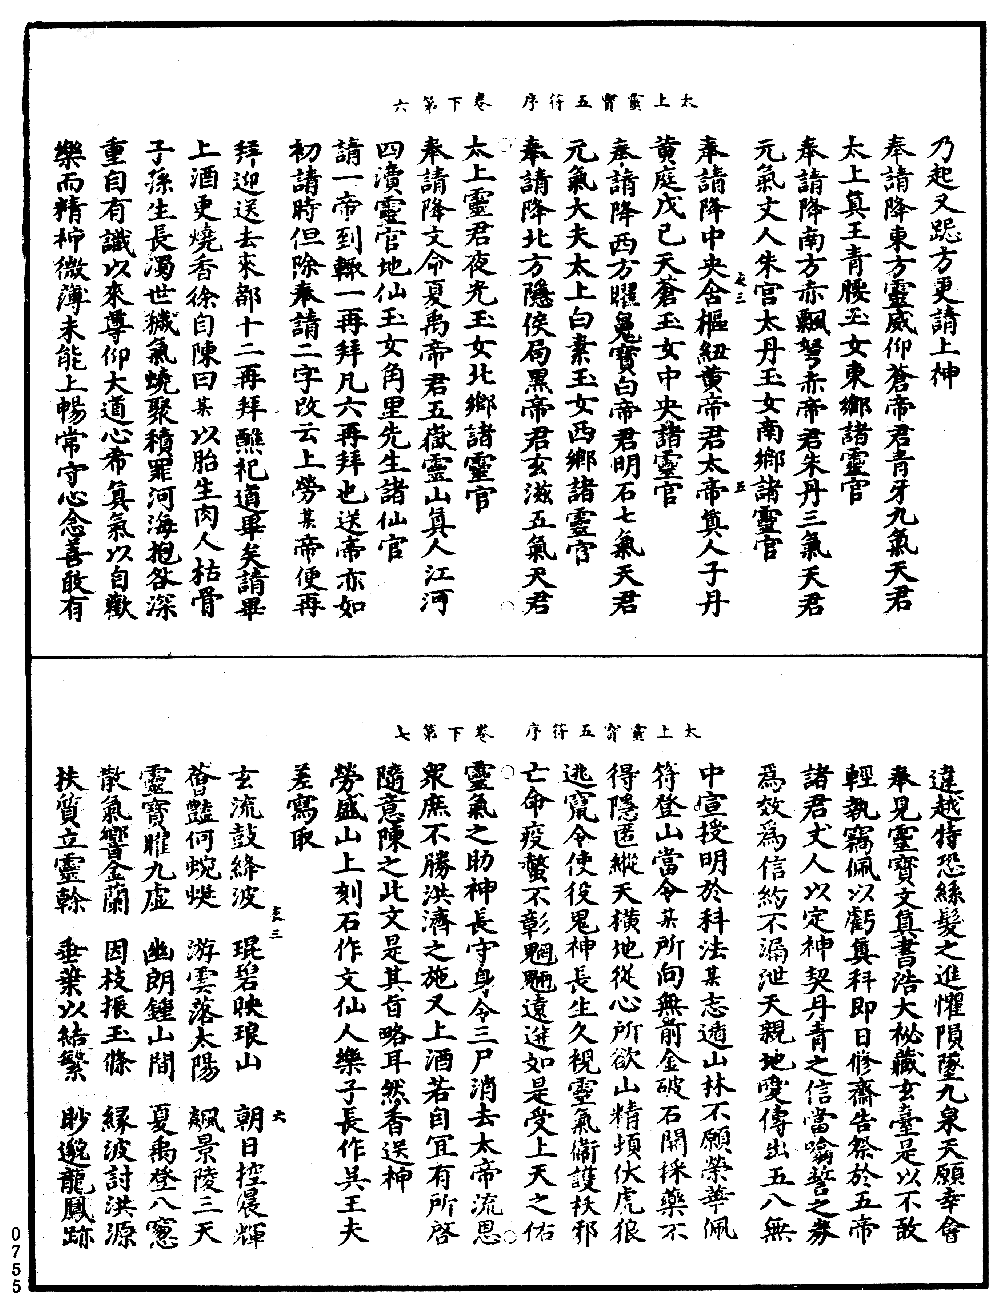 太上靈寶五符序　卷下第六
乃起又跽方更請上神
奉請降東方靈威仰蒼帝君青牙九氣天君
太上真王青腰玉女東鄉諸靈官
奉請降南方赤飄弩赤帝君朱丹三氣天君
元氣丈人朱宮太丹玉女南鄉諸靈官
奉請降中央含樞紐黄帝君太帝真人子丹
黄庭戊己天蒼玉女中央諸靈官
奉請降西方曜魄寶白帝君明石七氣天君
元氣大夫太上白素玉女西鄉諸靈官
奉請降北方隱侯局黑帝君玄滋五氣天君
太上靈君夜光玉女北鄉諸靈官
奉請降文命夏禹帝君五嶽靈山真人江河
四瀆靈官地仙玉女角里先生諸仙官
請一帝到輙一再拜凡六再拜也送帝亦如
初請時但除奉請二字改云上勞某帝便再
拜迎送去來都十二再拜醮祀道畢矣請畢
上酒更燒香徐自陳曰某以胎生肉人枯骨
子孫生長濁世穢氣燒聚積罪河海抱咎深
重自有識以來尊仰大道心希真氣以自歡
樂而精神微薄未能上暢常守心念善敢有
太上靈寶五符序　卷下第七
違越特恐絲髮之進懼隕墜九泉天願幸會
奉見靈寶文真書浩大秘藏玄臺是以不敢
輕執竊佩以虧真科即日修齋告祭於五帝
諸君丈人以定神契丹青之信當喻誓之券
爲效爲信約不漏泄天親地愛傳出五八無
中宣授明於科法某志遁山林不願榮華佩
符登山當令某所向無前金破石開採藥不
得隱匿縱天橫地從心所欲山精頓伏虎狼
逃竄令使役鬼神長生久視靈氣衛護袄邪
亡命疫螫不彰魍魎遠迸如是受上天之佑
靈氣之助神長守身令三尸消去太帝流恩
衆庶不勝洪濟之施又上酒若自宜有所啓
隨意陳之此文是其旨略耳然香送神
勞盛山上刻石作文仙人樂子長作吳王夫
差寫取
玄流鼓絳波　琨碧映琅山　朝日控晨輝
蓊豔何蜿蜷　游雲落太陽　飆景陵三天
靈寶曜九虛　幽朗鍾山間　夏禹登八窻
散氣響金蘭　因枝振玉條　緣波討洪源
扶質立靈幹　垂葉以結繁　眇邈龍鳳跡
0755